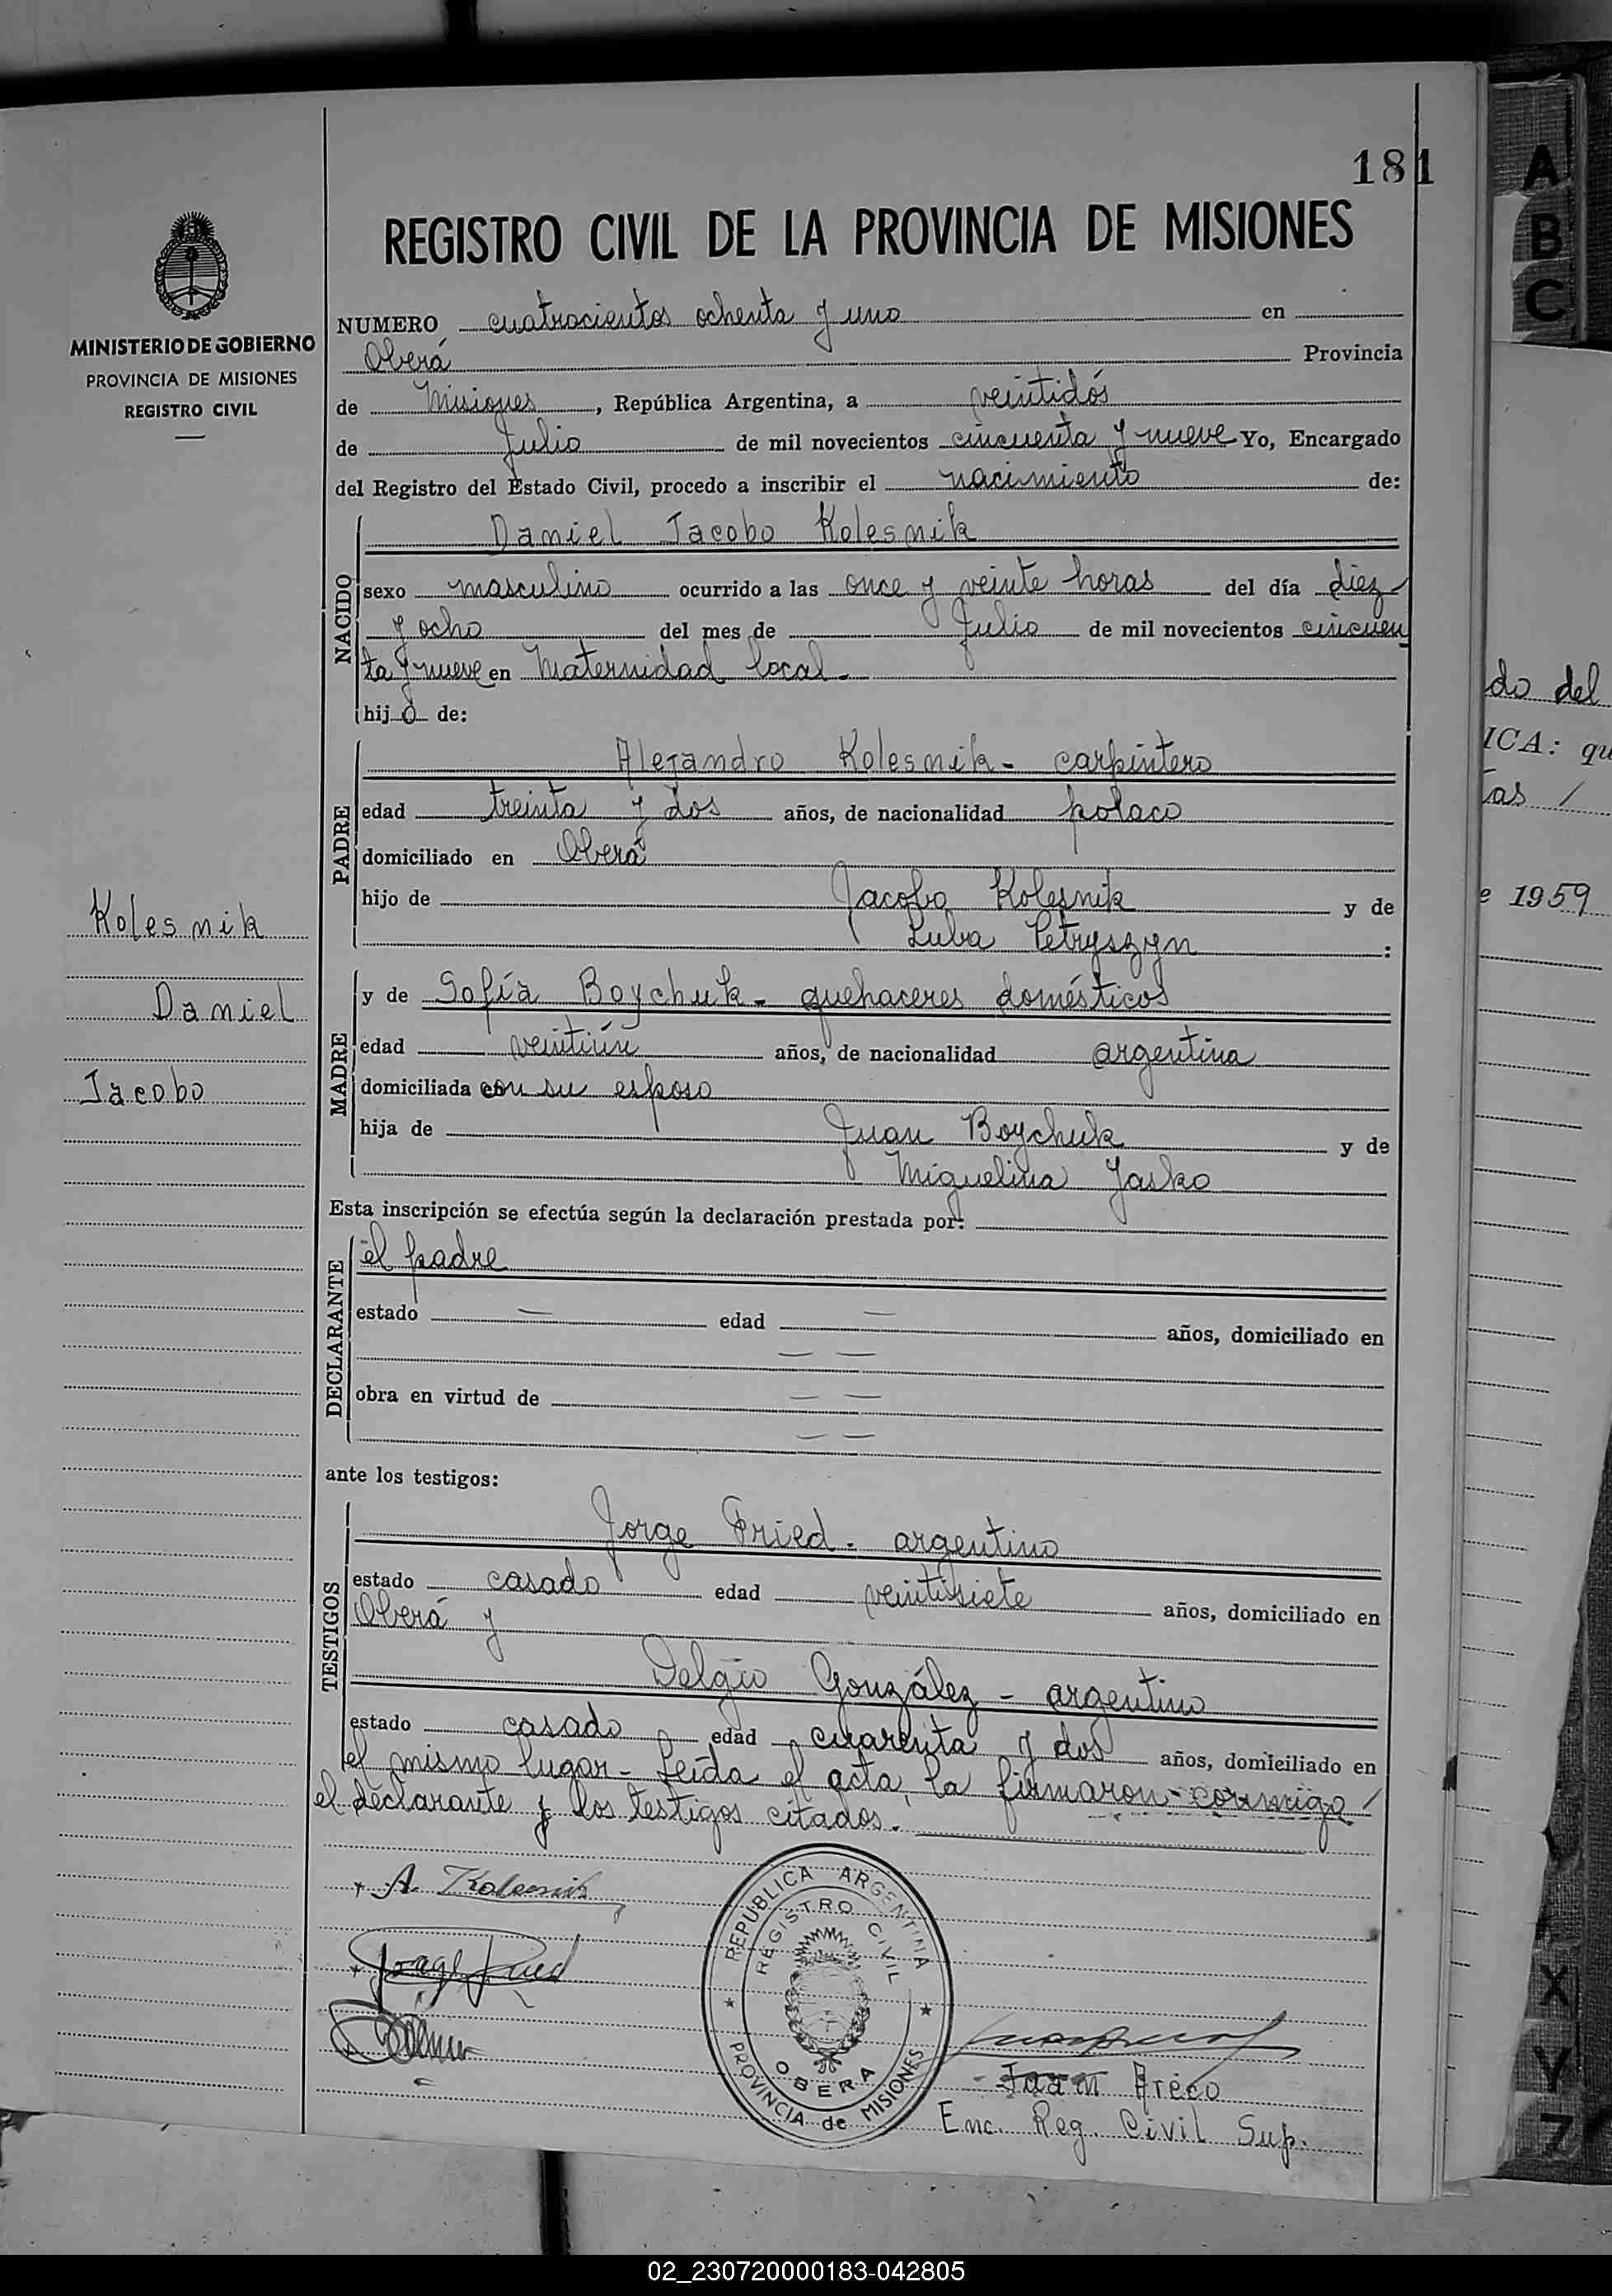 181
REGISTRO CIVIL DE LA PROVINCIA DE MISIONES
MINISTERIO DE GOBIERNO
PROVINCIA DE MISIONES
REGISTRO CIVIL
NUMERO cuatrocientos ochenta y uno en
Oberá Provincia
de Misiones, República Argentina, a veintidós
de Julio de mil novecientos cincuenta y nueve Yo, Encargado
del Registro del Estado Civil, procedo a inscribir el nacimiento de:
NACIDO
Daniel Jacobo Kolesnik
sexo masculino ocurrido a las once y veinte horas del día diez
y ocho del mes de Julio de mil novecientos cincuen
ta y nueve en Maternidad local.
hijo de:
PADRE
Alejandro Kolesnik - carpintero
edad treinta y dos años, de nacionalidad polaco
domiciliado en Oberá
hijo de Jacobo Kolesnik y de
Luba Petryszyn :
MADRE
y de Sofía Boychuk - quehaceres domésticos
edad veintiún años, de nacionalidad argentina
domiciliada con su esposo
hija de Juan Boychuk y de
Miguelina Jasko
Kolesnik
Daniel
Jacobo
Esta inscripción se efectúa según la declaración prestada por:
DECLARANTE
el padre
estado — edad — años, domiciliado en
— —
obra en virtud de — —
— —
ante los testigos:
TESTIGOS
Jorge Fried - argentino
estado casado edad veintisiete años, domiciliado en
Oberá y
Delgio González - argentino
estado casado edad cuarenta y dos años, domiciliado en
el mismo lugar - Leída el acta, la firmaron conmigo
el declarante y los testigos citados.
A. Kolesnik
Jorge Fried
REPUBLICA ARGENTINA
REGISTRO CIVIL
OBERA
PROVINCIA de MISIONES
Juan Areco
Enc. Reg. Civil Sup.
do del
ICA: qu
tas /
e 1959
A
B
C
X
Y
Z
02_230720000183-042805